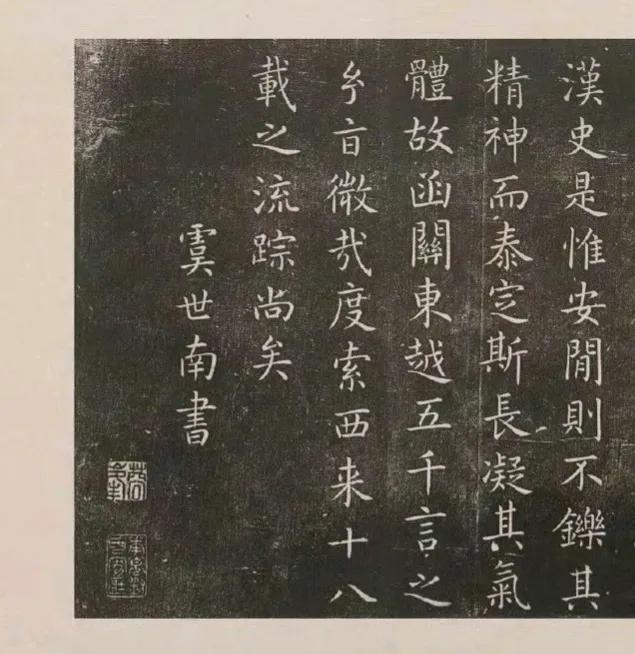 漢史是惟安閒則不鑠其
精神而泰定斯長凝其氣
體故函關東越五千言之
兮㫖微㢤度索西来十八
載之流踪尚矣
虞世南書